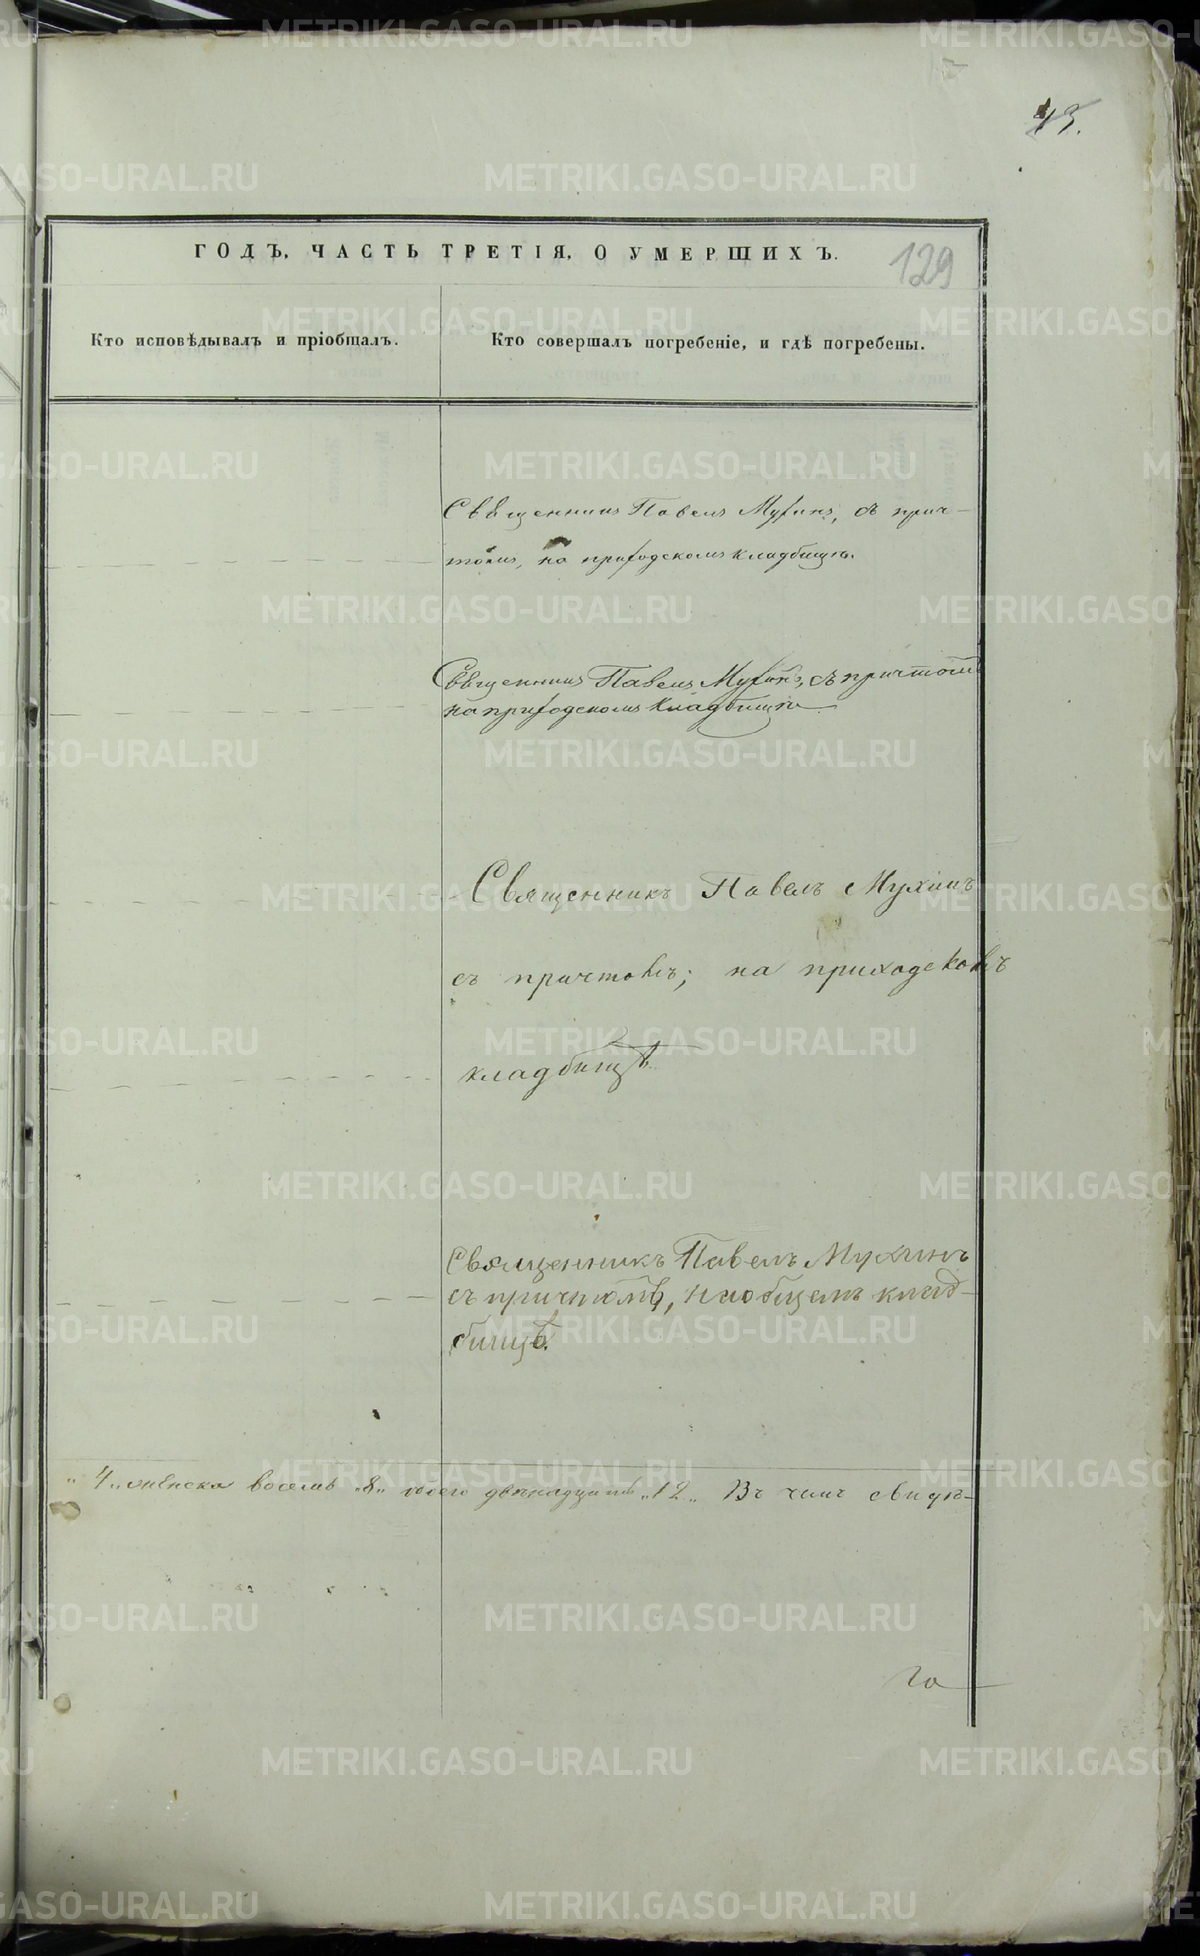 43.
ГОДЪ, ЧАСТЬ ТРЕТІЯ, О УМЕРШИХЪ.
129
Кто исповѣдывалъ и пріобщалъ.
Кто совершалъ погребеніе, и гдѣ погребены.
Священникъ Павелъ Мухинъ, съ прич-
томъ, на приходскомъ кладбищѣ.
Священникъ Павелъ Мухинъ, съ причтомъ
на приходскомъ кладбищѣ.
Священникъ Павелъ Мухинъ
съ причтомъ; на приходскомъ
кладбищѣ.
Священникъ Павелъ Мухинъ
съ причтомъ, на общемъ клад-
бищѣ.
„4„ женска восемь „8„ всего двѣнадцать „12„ Въ чемъ свидѣ-
METRIKI.GASO-URAL.RU